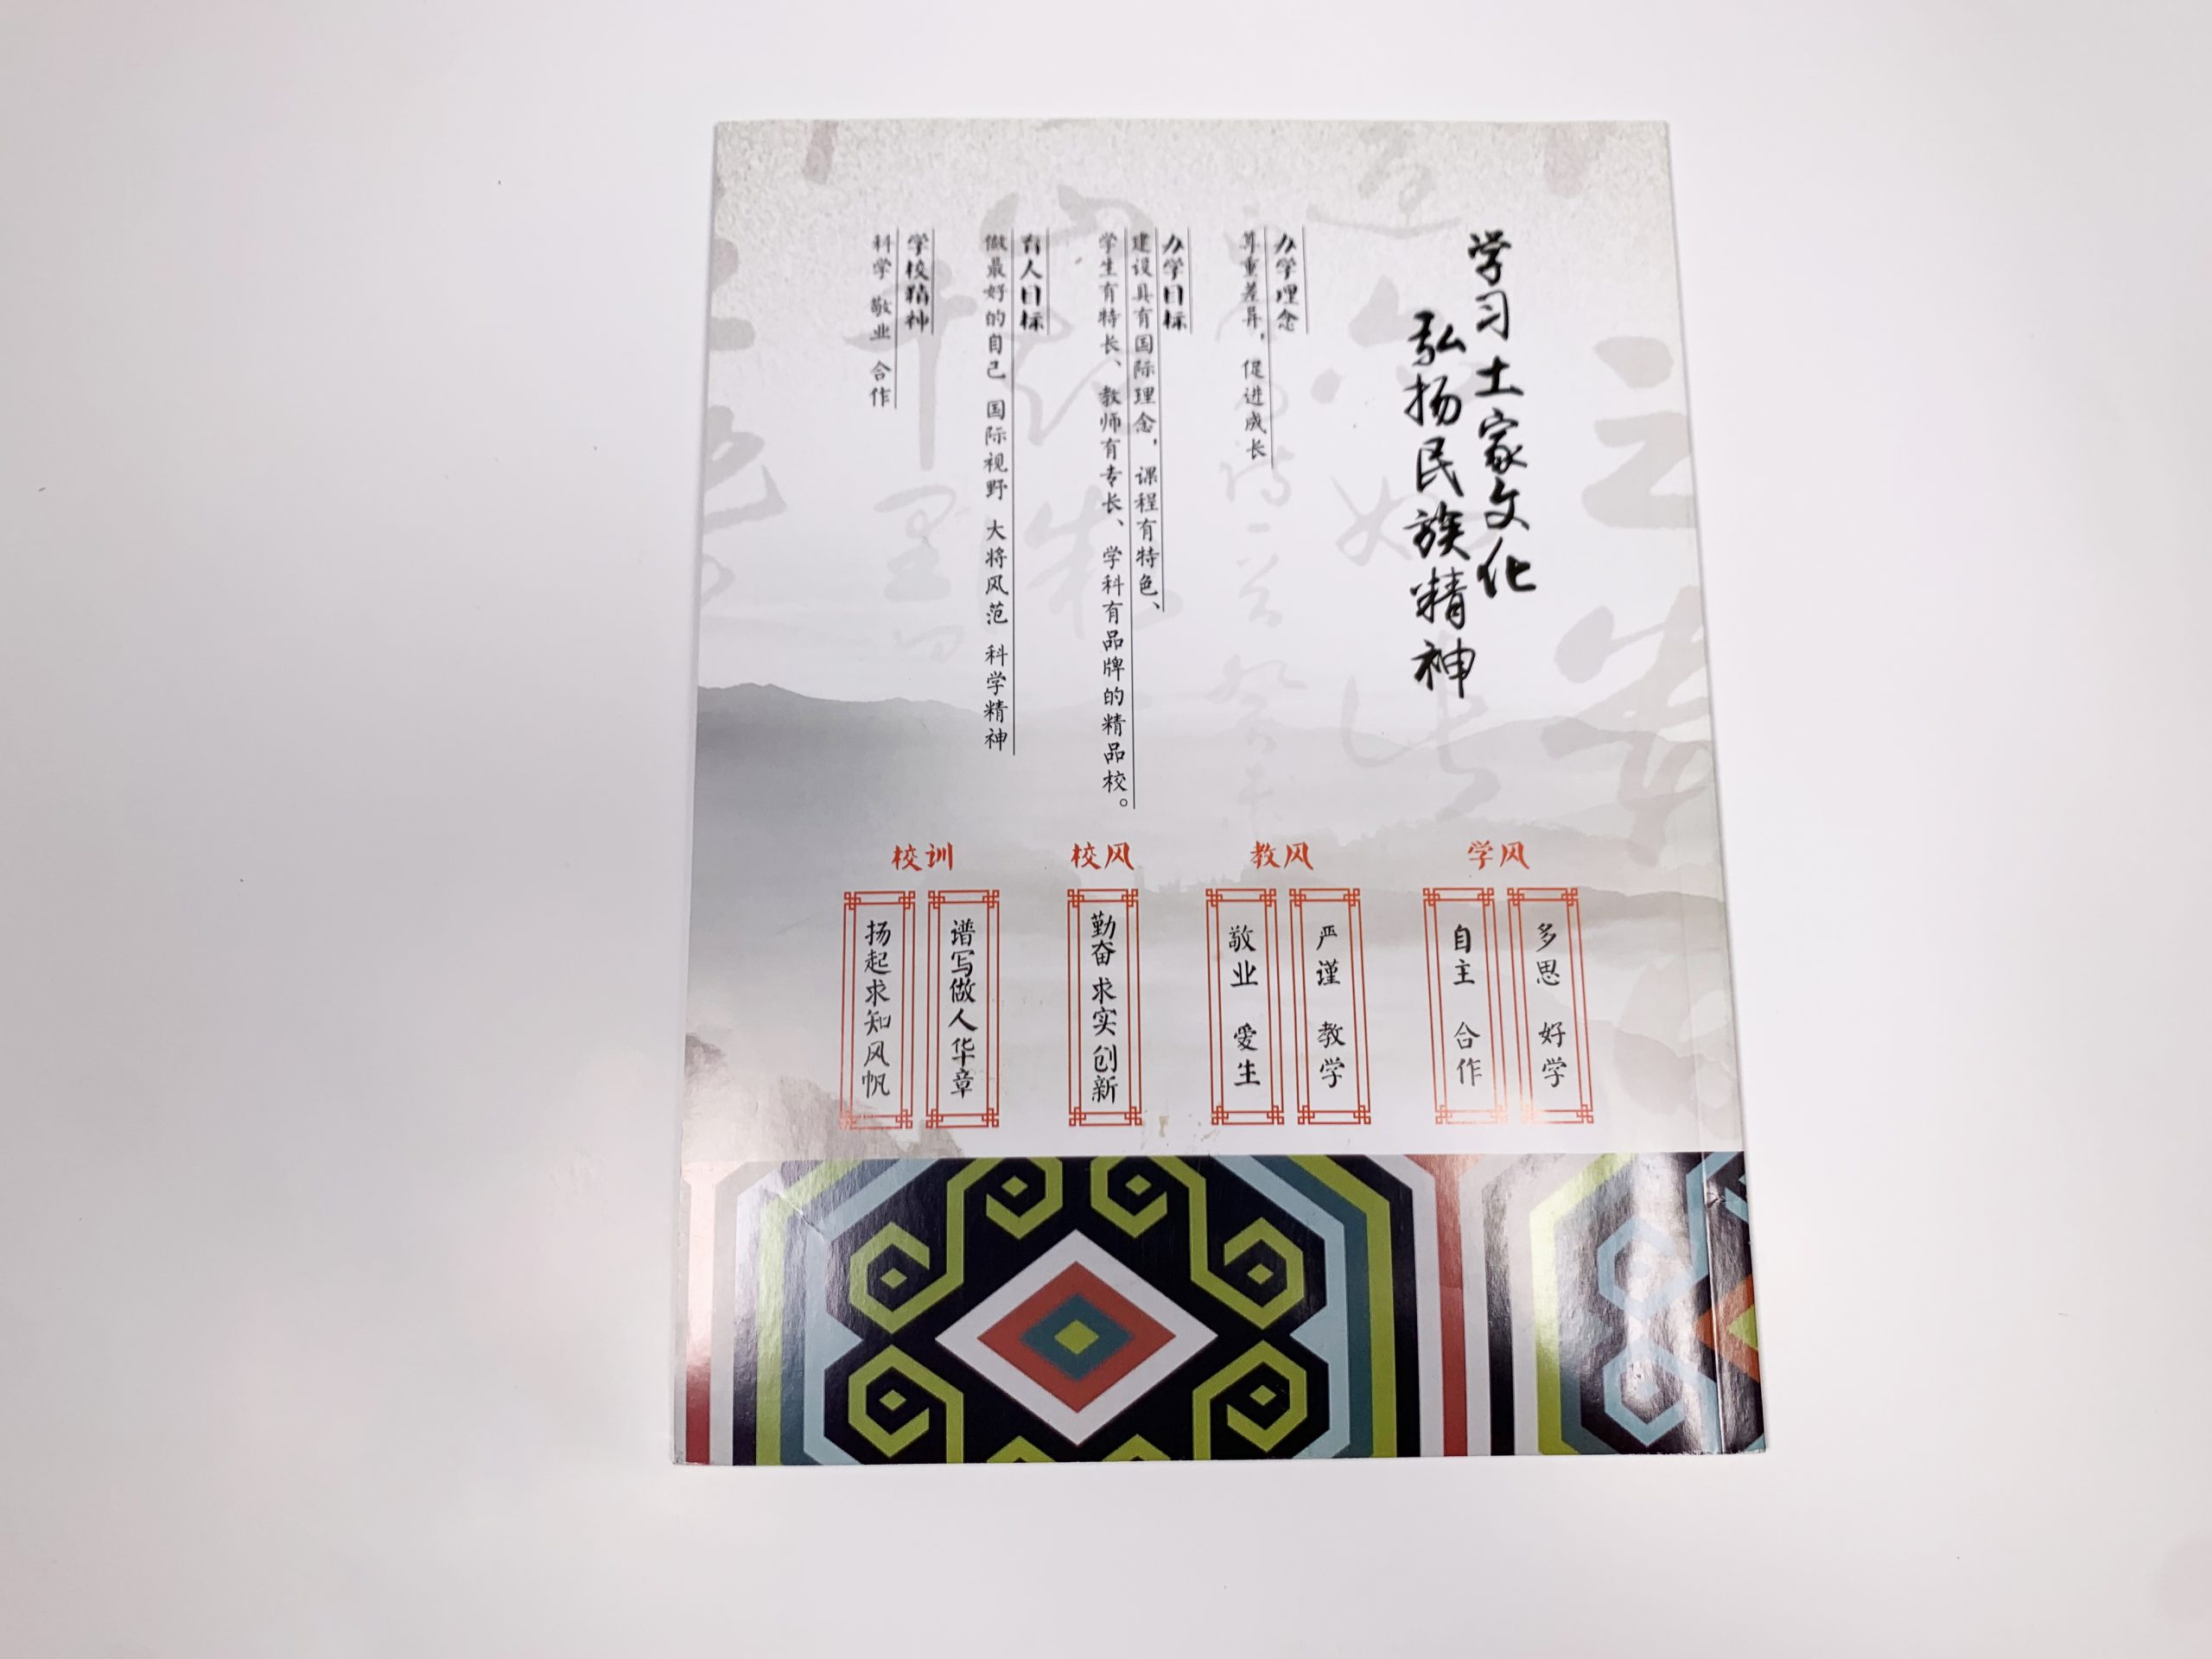 学习土家文化
弘扬民族精神
办学理念
尊重差异，促进成长
办学目标
建设具有国际理念，课程有特色、
学生有特长、教师有专长、学科有品牌的精品校。
育人目标
做最好的自己 国际视野 大将风范 科学精神
学校精神
科学 敬业 合作
校训
扬起求知风帆
谱写做人华章
校风
勤奋 求实 创新
教风
敬业 爱生
严谨 教学
学风
自主 合作
多思 好学